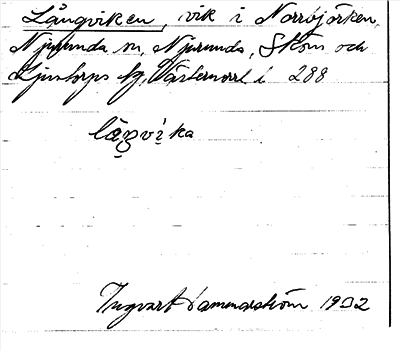 Långviken, vik i Norrbjörken,
Njurunda sn, Njurunda, Sköns och
Ljustorps tg, Västernorrl. l. 288
lågvika
Ingvart Hammarström 1932